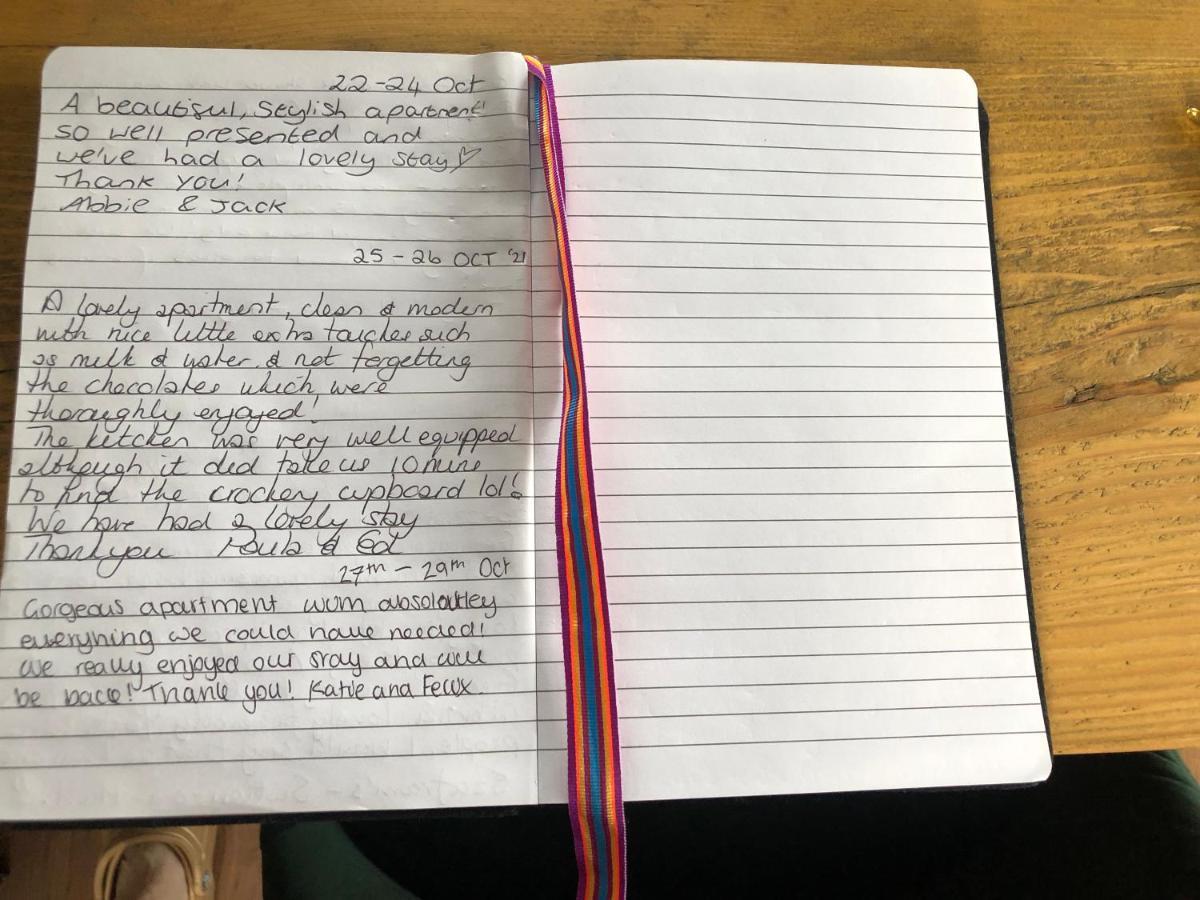 22-24 Oct
A beautiful, Stylish apartment!
so well presented and
we've had a lovely stay♡
Thank you!
Abbie & Jack
25 - 26 OCT '21
A lovely apartment, clean & modern
with nice little extra touches such
as milk & water & not forgetting
the chocolates which were
thoroughly enjoyed!
The kitchen was very well equipped
although it did take us 10 mins
to find the crockery cupboard lol!
We have had a lovely stay
Thankyou Paula & Ed
27th - 29th Oct
Gorgeous apartment with absoloutley
everything we could have needed!
we really enjoyed our stay and will
be back! Thank you! Katie and Felix